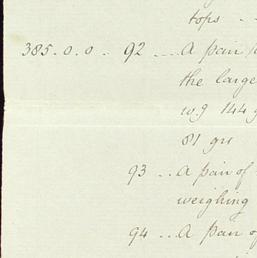 tops - -
385.0.0.. 92 ... A pair
the large
w.g 144 g
81 grs
93 ... A pair of
weighing
94 ... A pair of